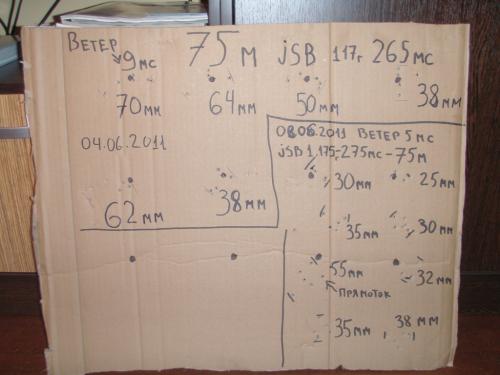 ВЕТЕР 9 мс 75 м JSB 1.17г 265 мс
70 мм 64 мм 50 мм 38 мм
04.06.2011
62 мм 38 мм
08.06.2011 ВЕТЕР 5 мс
JSB 1.175-275мс-75м
30мм 25мм
35мм 30мм
55мм 32мм
ПРЯМОТОК
35мм 38 мм